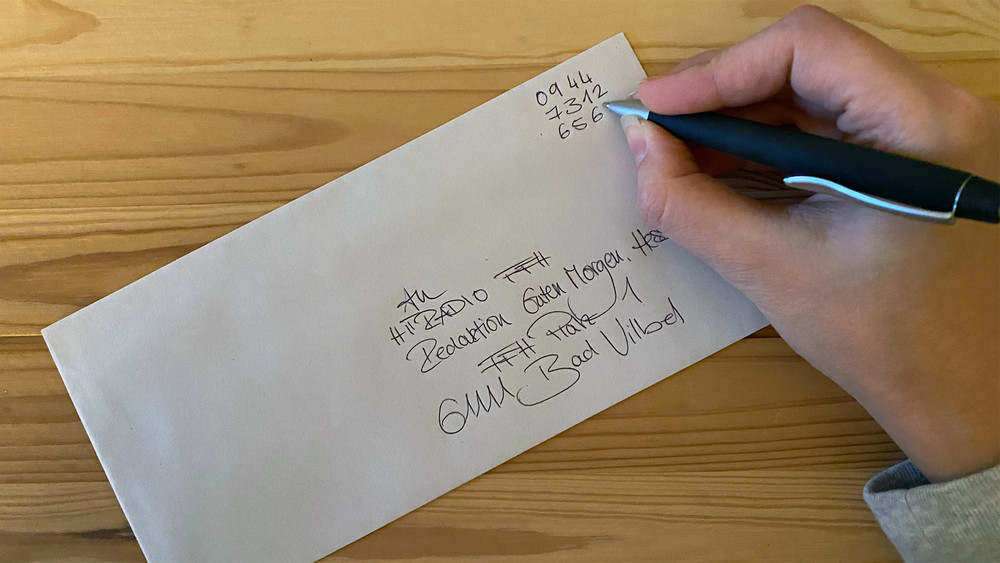 09 44
7312
656
An
HIT RADIO FFH
Redaktion Guten Morgen, Hess
FFH Platz 1
61111 Bad Vilbel